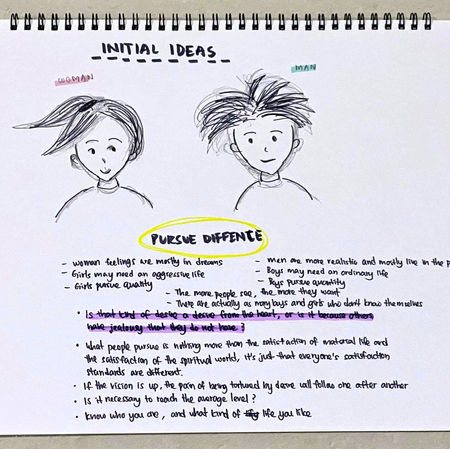 INITIAL IDEAS
WOMAN
MAN
PURSUE DIFFENCE
- woman feelings are mostly in dreams
- Girls may need an aggressive life
- Girls pursue quantity
- men are more realistic and mostly live in the
- Boys may need an ordinary life
- Boys pursue quantity
- The more people see, the more they want
- There are actually as many boys and girls who don't know themselves
• Is that kind of desire a desire from the heart, or is it because others
have jealousy that they do not have?
• What people pursue is nothing more than the satisfaction of material life and
the satisfaction of the spiritual world, it's just that everyone's satisfaction
standards are different.
• If the vision is up, the pain of being tortured by desire will follow one after another
• Is it necessary to reach the average level?
• Know who you are, and what kind of life you like